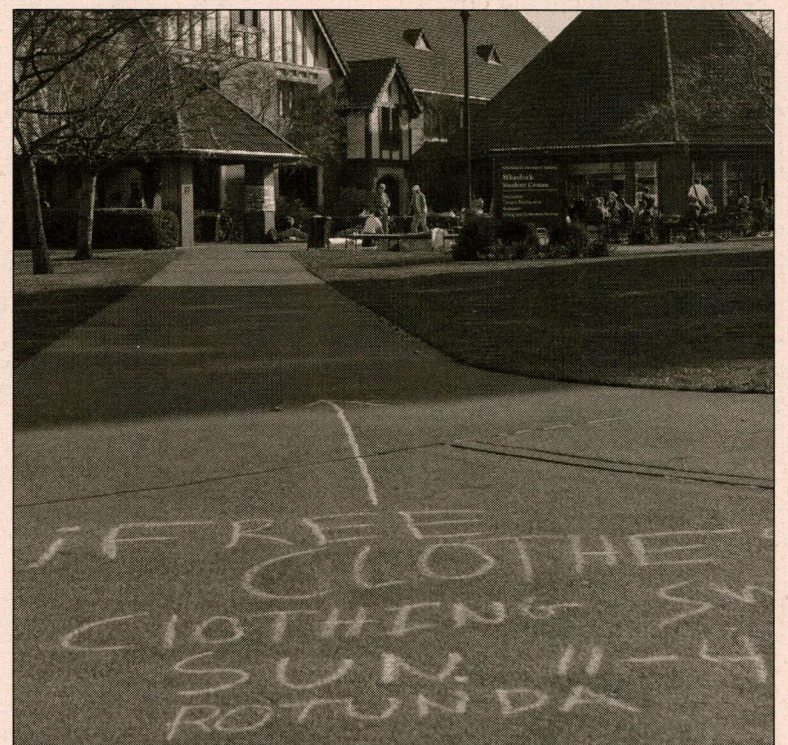 Wheelock
Student Center
¡FREE
CLOTHE
CLOTHING
SUN. 11-4
ROTUNDA